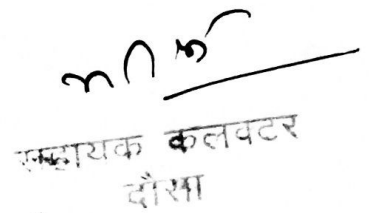 सहायक कलक्टर
दौसा